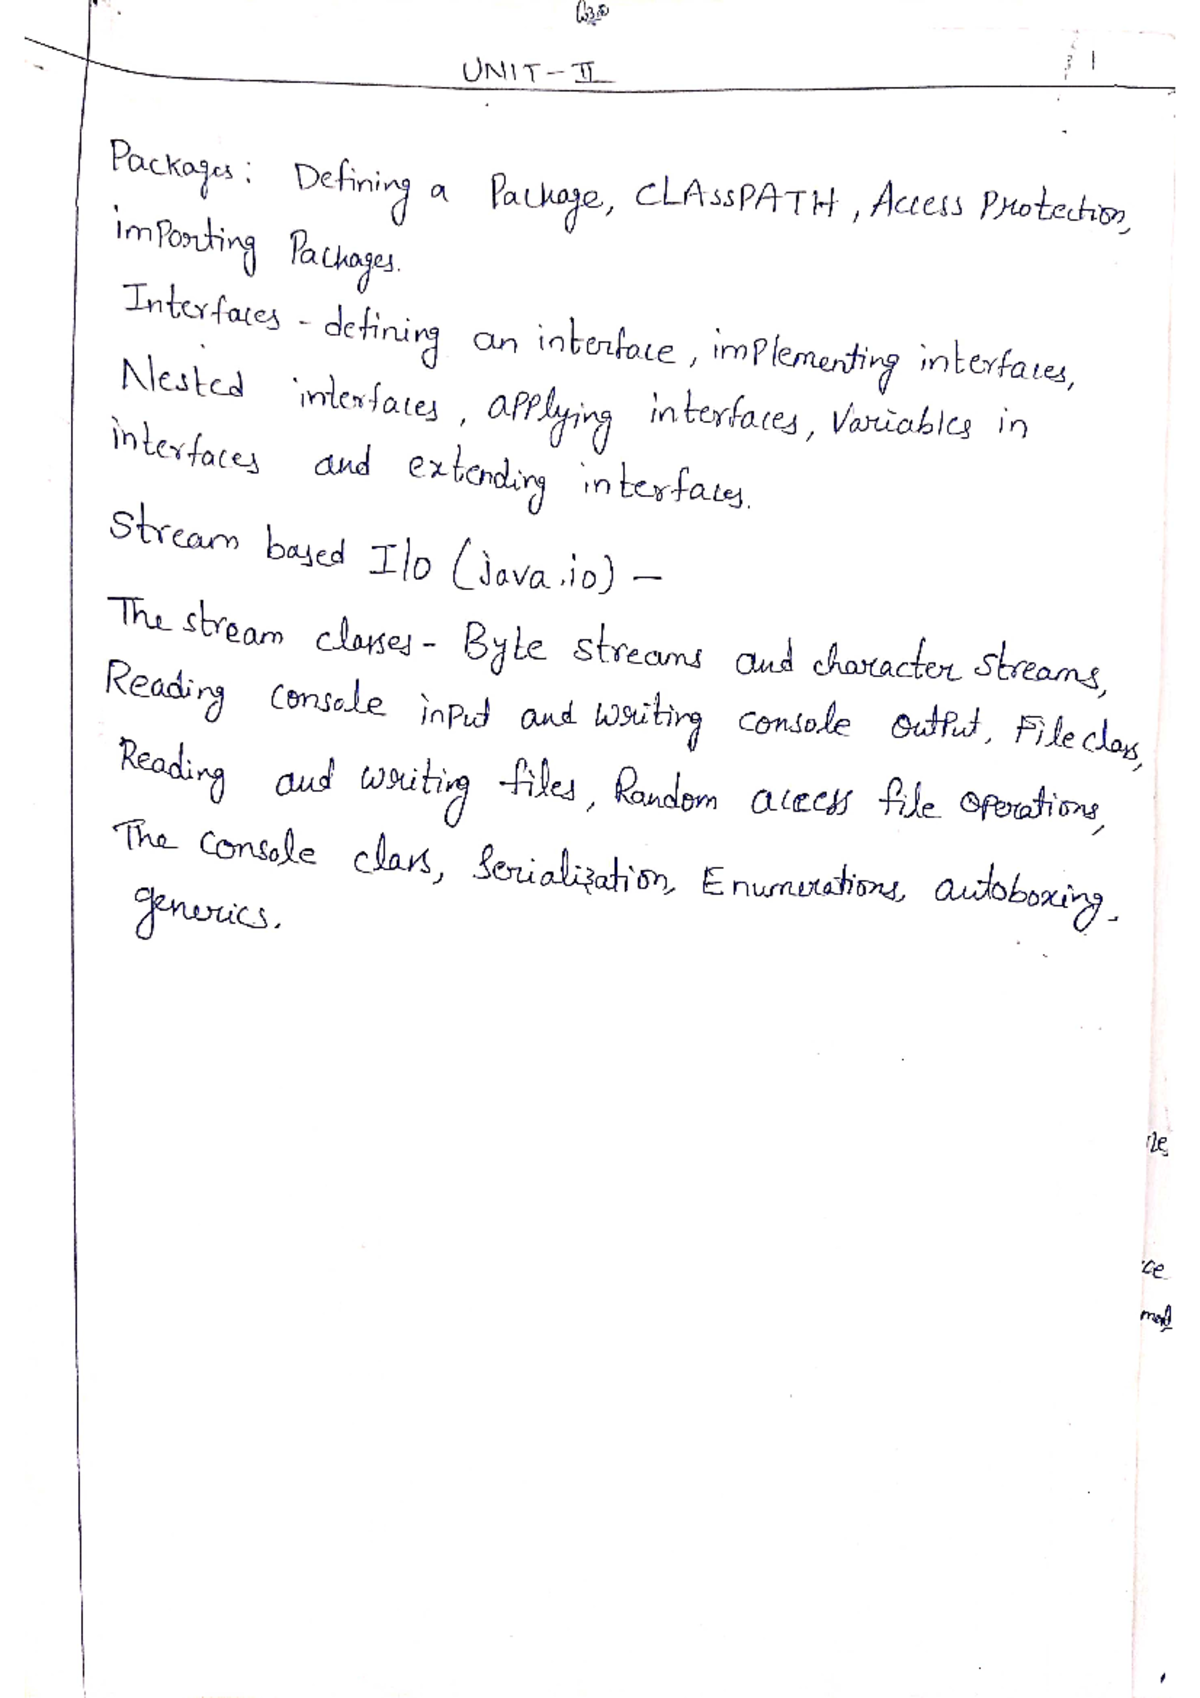 UNIT-II
1
Packages: Defining a Package, CLASSPATH, Access Protection,
importing Packages.
Interfaces - defining an interface, implementing interfaces,
Nested interfaces, applying interfaces, Variables in
interfaces and extending interfaces.
Stream based I/O (java.io) -
The stream classes - Byte streams and character streams,
Reading console input and writing console output, File class,
Reading and writing files, Random access file operations,
The Console class, Serialization, Enumerations, autoboxing.
generics.